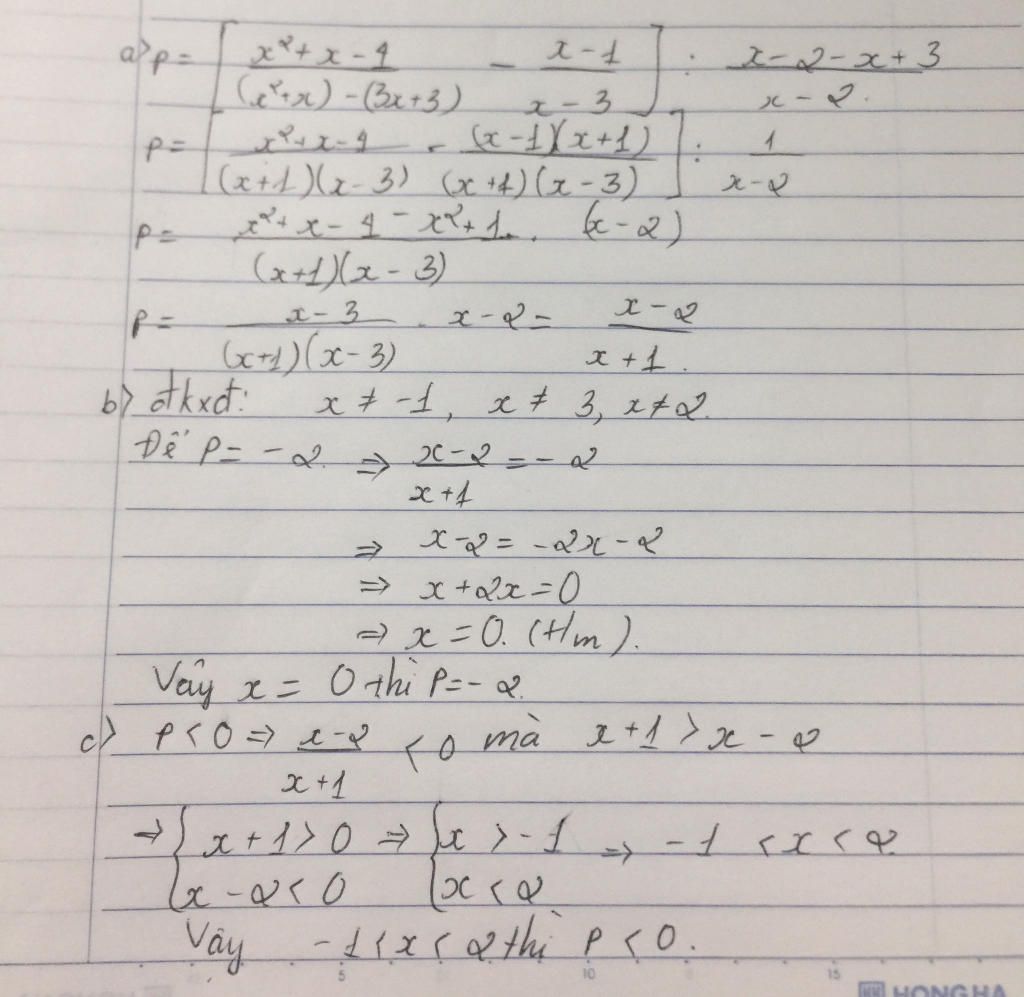 a> P = [ (x²+x-4)/((x²+x)-(3x+3)) - (x-1)/(x-3) ] : (x-2-x+3)/(x-2).
P = [ (x²+x-4)/((x+1)(x-3)) - ((x-1)(x+1))/((x+1)(x-3)) ] : 1/(x-2)
P = (x²+x-4-x²+1)/((x+1)(x-3)) . (x-2)
P = (x-3)/((x+1)(x-3)) . x-2 = (x-2)/(x+1).
b> đkxđ: x ≠ -1, x ≠ 3, x ≠ 2.
Để P = -2. ⇒ (x-2)/(x+1) = -2
⇒ x-2 = -2x-2
⇒ x+2x=0
⇒ x = 0. (t/m).
Vậy x = 0 thì P=-2.
c> P<0 ⇒ (x-2)/(x+1) < 0 mà x+1 > x-2
⇒ { x+1>0 ⇒ { x > -1 ⇒ -1 < x < 2.
{ x-2<0 { x<2
Vậy -1<x<2 thì P<0.
5 10 15
HONG HA